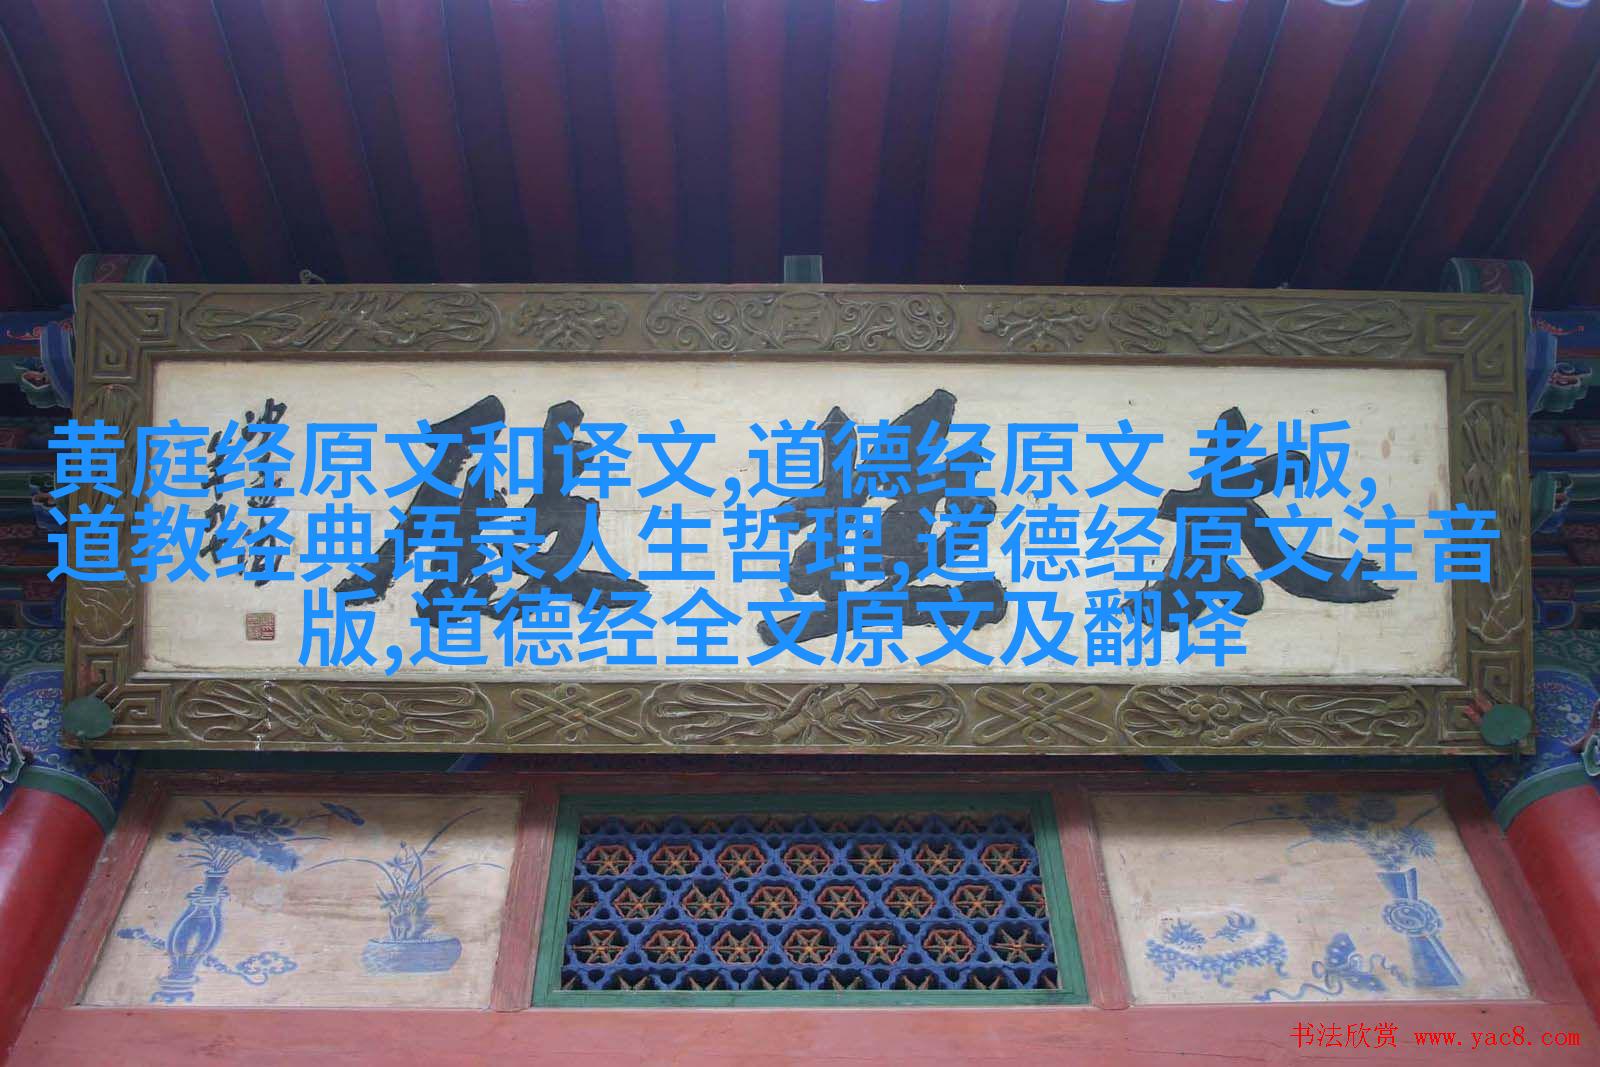 黄庭经原文和译文,道德经原文 老版,
道教经典语录人生哲理,道德经原文注音
版,道德经全文原文及翻译
书法欣赏 www.yac8.com